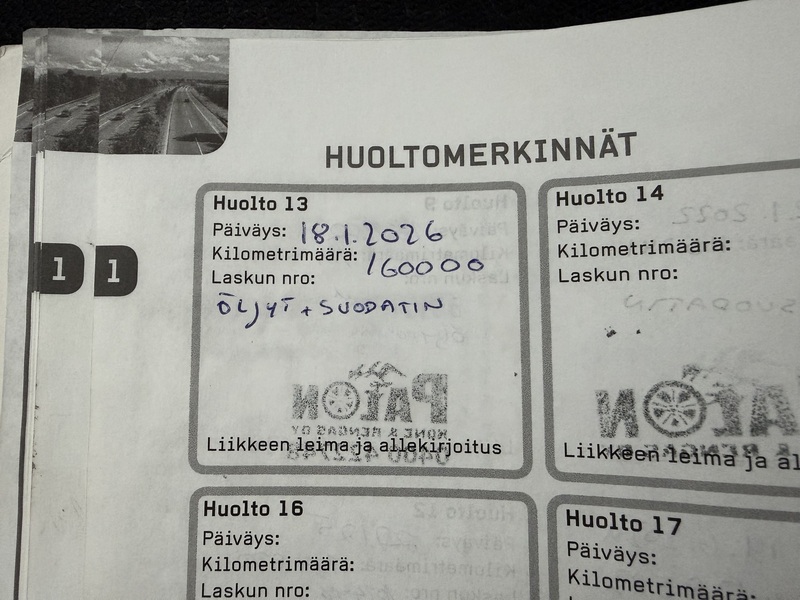 HUOLTOMERKINNÄT
Huolto 13
Päiväys: 18.1.2026
Kilometrimäärä: 160000
Laskun nro:
ÖLJYT + SUODATIN
PALON
KONE & RENGAS OY
Liikkeen leima ja allekirjoitus
Huolto 14
Päiväys:
Kilometrimäärä:
Laskun nro:
Liikkeen leima ja al
1 1
Huolto 16
Päiväys:
Kilometrimäärä:
Laskun nro:
Huolto 17
Päiväys:
Kilometrimäärä: